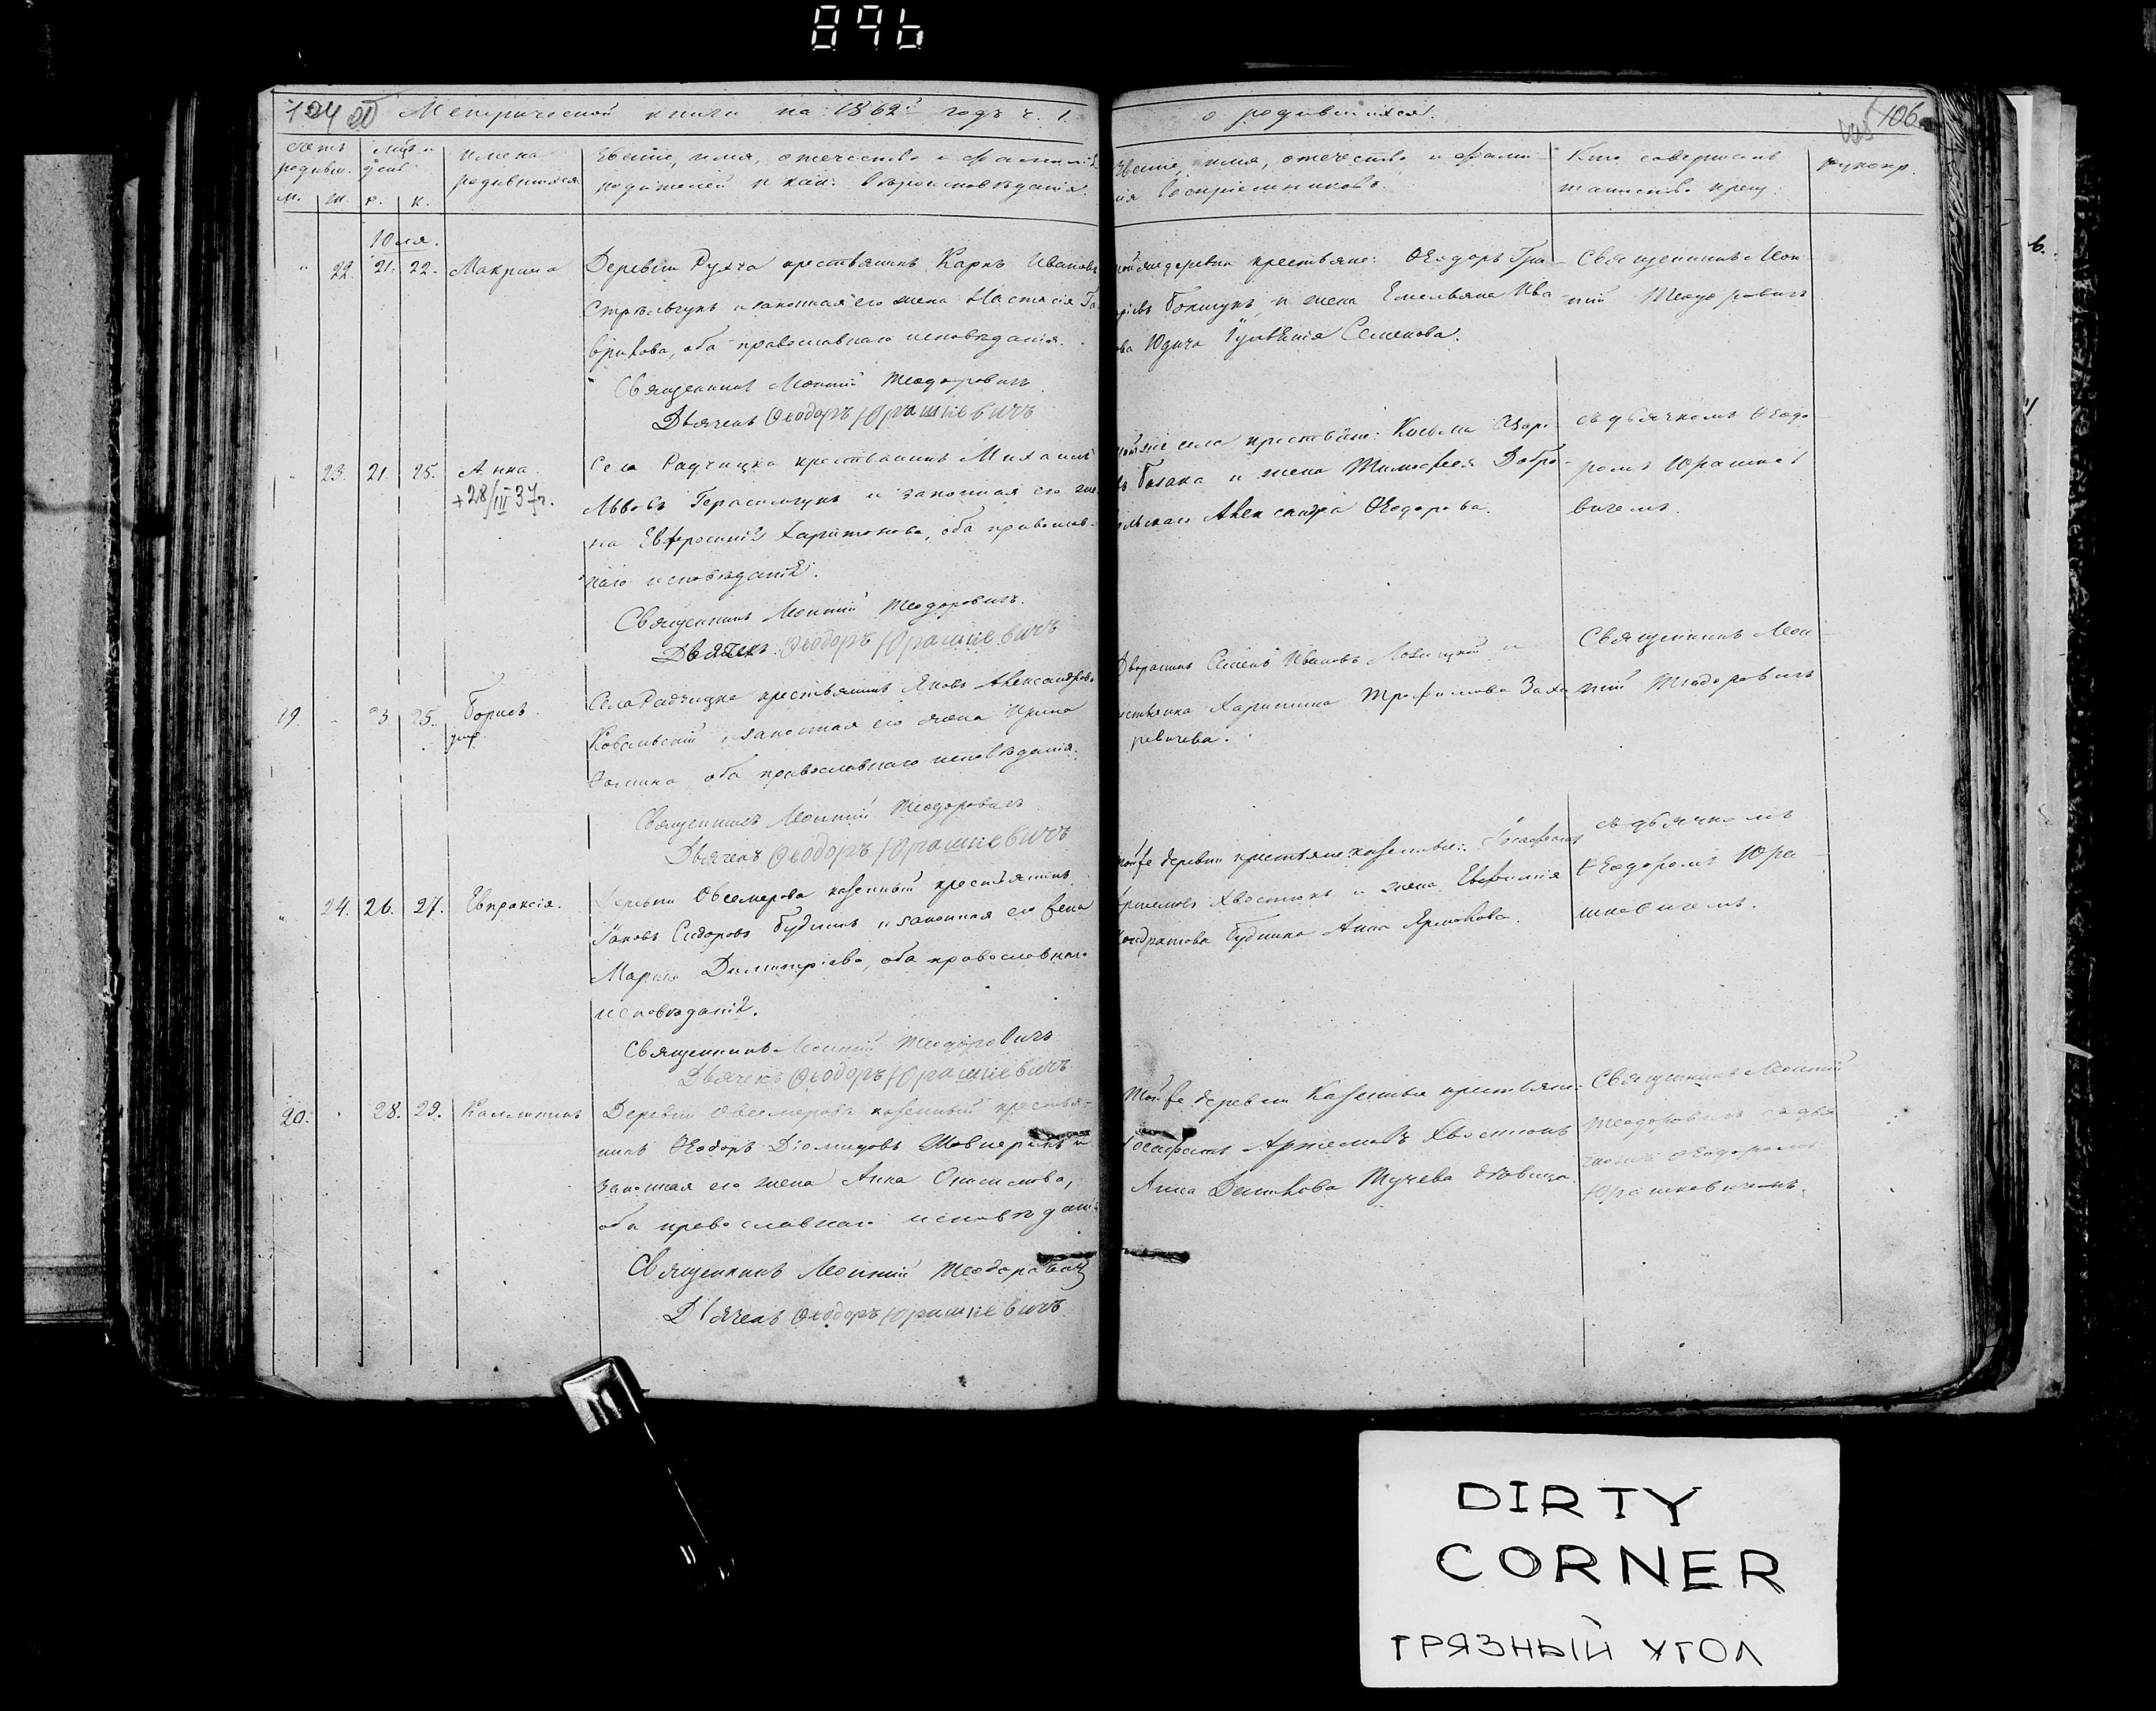 896
104 Метрической книги на 1862й годъ ч. 1. о родившихся.
106
Счетъ родивш. Мцъ и день
имена родившихся
Званіе, имя, отечество и фамилія
родителей и как. вѣроисповѣданія.
Званіе, имя, отечество и фами-
лія воспріемниковъ.
Кто совершалъ
таинство крещ.
рукопр.
м. ж. р. к.
Юля.
" 22. 21. 22. Макрина
Деревни Рухча крестьянинъ Карпъ Ивановъ
Стрѣльчукъ и законная его жена Настасія Га-
врилова, оба православнаго исповѣданія.
Священникъ Теодоровичъ
Дьячекъ Ѳеодоръ Юрашкевичъ
той же деревни крестьяне: Ѳеодоръ Гри-
и жена Емельяна Ива-
нова Юдича Семенова.
Священникъ Леон-
тій Теодоровичъ
съ дьячкомъ Ѳеодо-
ромъ Юрашке-
вичемъ.
" 23. 21. 25. Анна.
+28/III 37г.
Села Радчицка крестьянинъ Михаилъ
Львовъ Герасимчукъ и законная его же-
на Евфросинія Харитонова, оба православ-
наго исповѣданія.
Священникъ Теодоровичъ.
Дьячекъ Ѳеодоръ Юрашкевичъ
села крестьяне: Косьма
и жена Тимоѳея Добро-
вольскаго Александра Ѳеодорова.
19. " 23. 25. Борисъ.
умр.
Села Радчицка крестьянинъ Яковъ Александровъ
Ковальскій и законная его жена Ирина
Фомина, оба православнаго исповѣданія.
Священникъ Теодоровичъ
Дьячекъ Ѳеодоръ Юрашкевичъ
Дворянинъ Семенъ Ивановъ и
крестьянка Харитина Трофимова Заха-
ревичева.
Священникъ Леон-
тій Теодоровичъ
съ дьячкомъ
Ѳеодоромъ Юра-
шкевичемъ.
" 24. 26. 27. Евпраксія.
Деревни Овсемерова казенный крестьянинъ
Іаковъ Сидоровъ Будникъ и законная его жена
Марія Димитріева, оба православнаго
исповѣданія.
Священникъ Теодоровичъ
Дьячекъ Ѳеодоръ Юрашкевичъ
Той же деревни крестьяне казенные: Іосафатъ
Артемовъ Хвостюкъ и жена Евфимія
Кондратова Будника Анна Ермакова.
20. " 28. 29. Каллиникъ
Деревни Овсемерова казенный крестья-
нинъ Ѳеодоръ Діомидовъ и
законная его жена Анна Онисимова,
оба православнаго исповѣдані
Священникъ Теодоровичъ
Дьячекъ Ѳеодоръ Юрашкевичъ
Той же деревни казенные крестьяне:
Іосафатъ Артемовъ Хвостюкъ
Анна дѣвица.
Священникъ Леонтій
Теодоровичъ съ дья-
чкомъ Ѳеодоромъ
Юрашкевичемъ.
DIRTY
CORNER
ГРЯЗНЫЙ УГОЛ